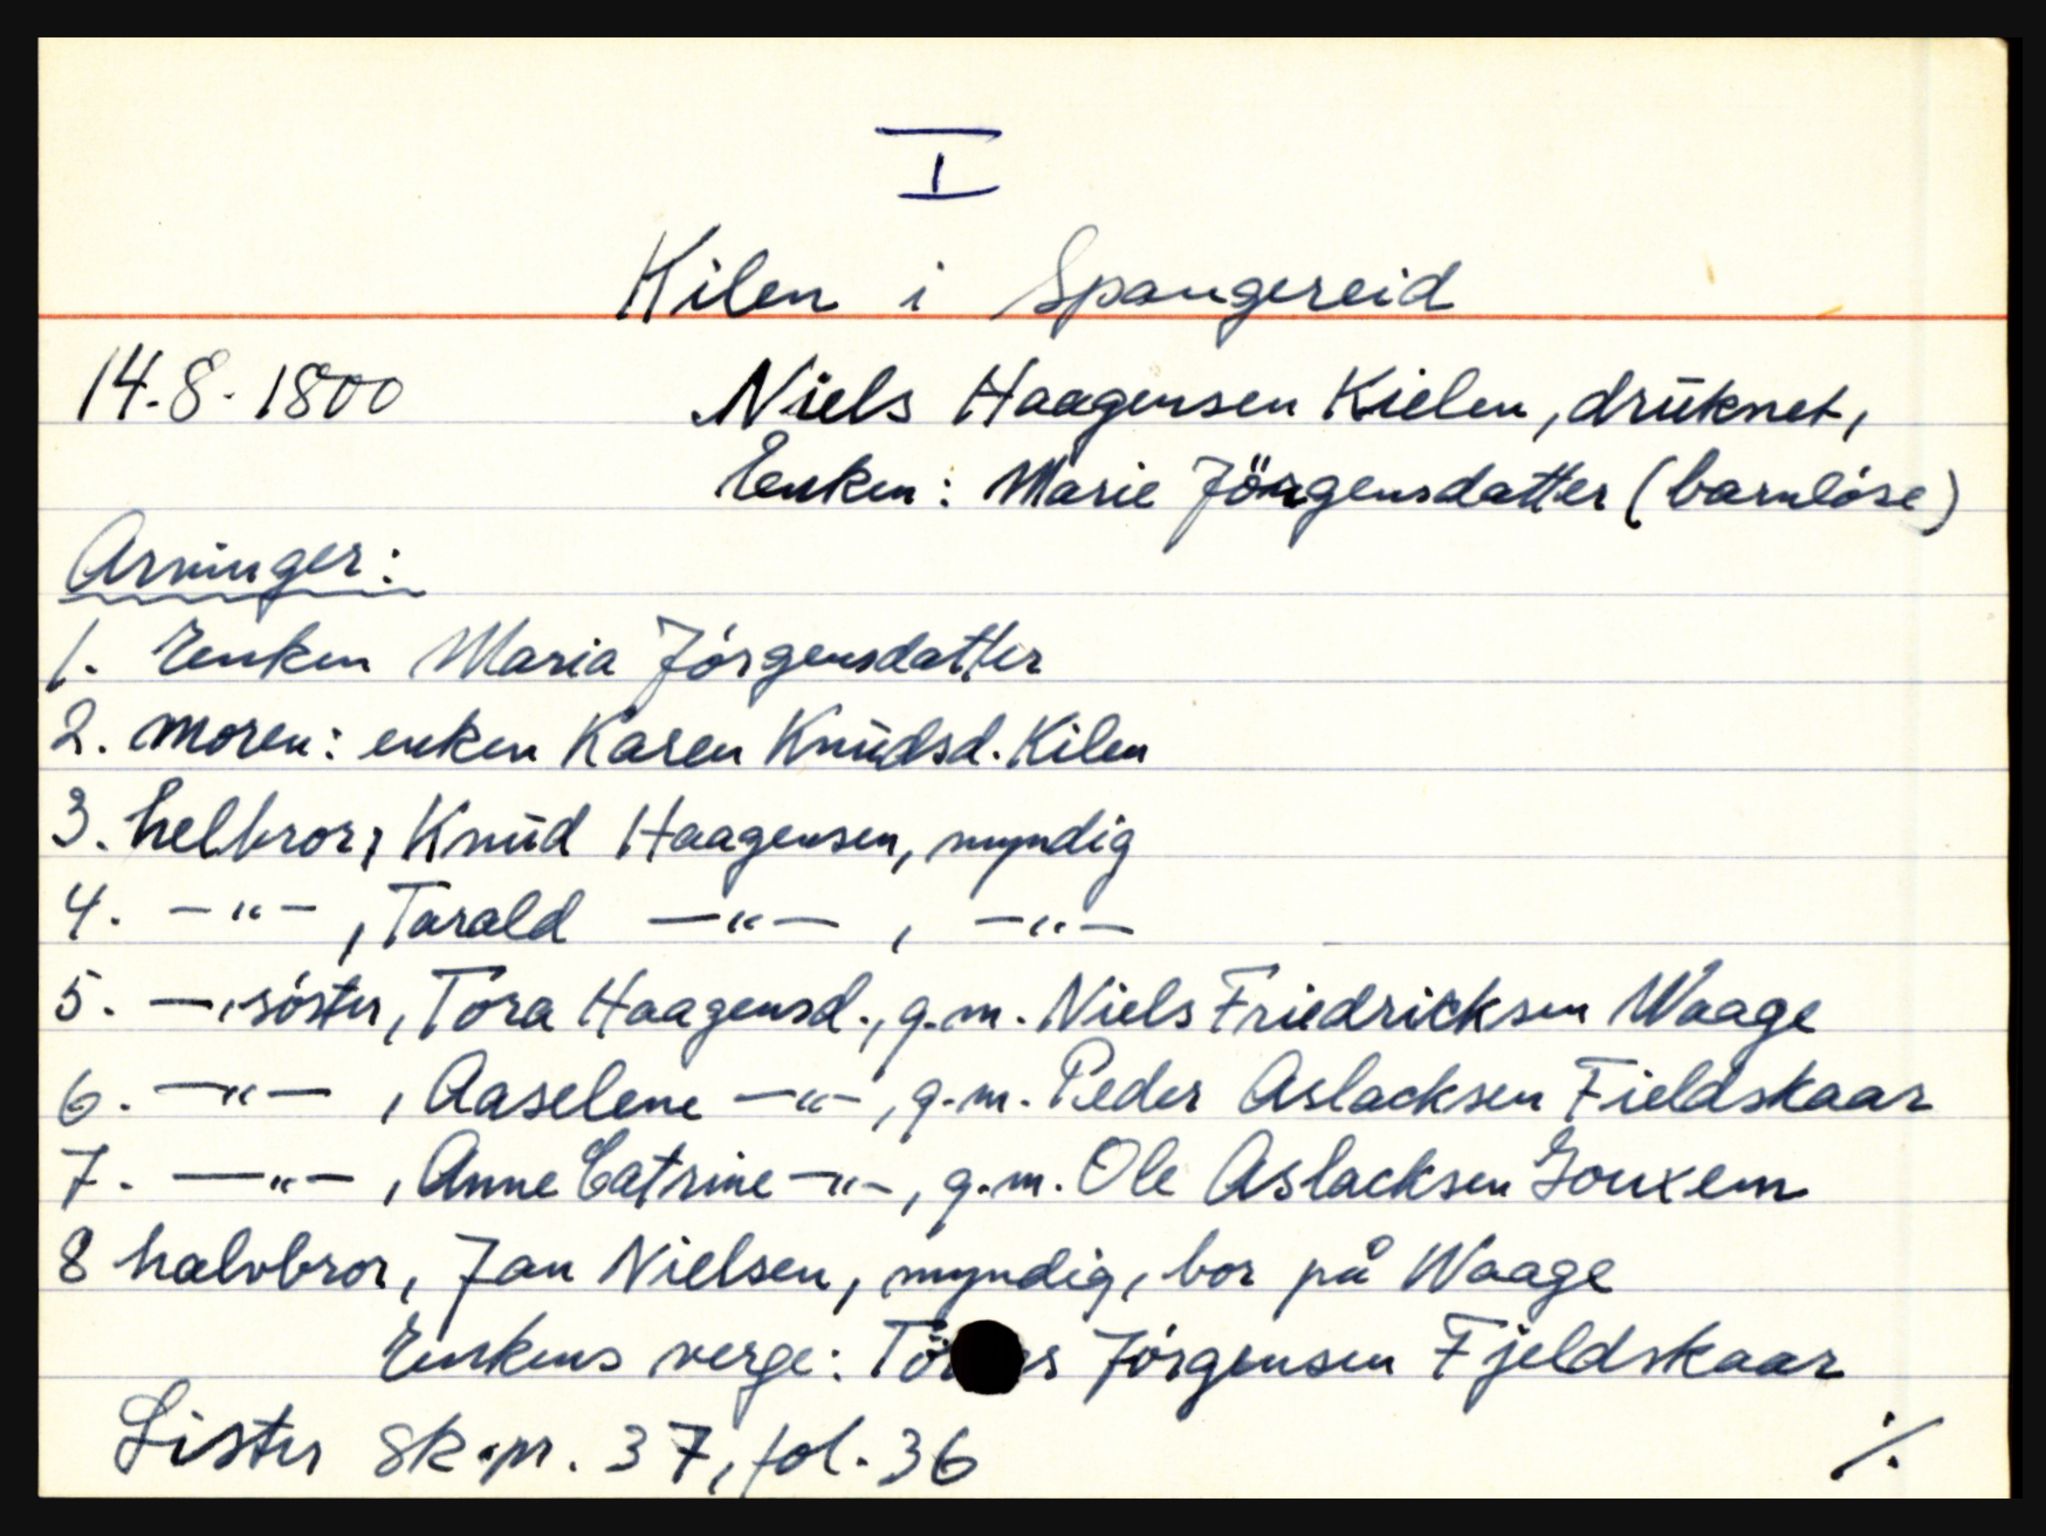 I
Kilen i Spangereid
14.8.1800 Niels Haagensen Kielen, druknet,
Enken: Marie Jörgensdatter (barnløse)
Arvinger:
1. Enken Maria Jórgensdatter
2. moren: enken Karen Knudsd. Kilen
3. helbror, Knud Haagensen, myndig
4. —"—, Tarald —"—, —"—
5. —, søster, Tora Haagensd., g.m. Niels Friedricksen Waage
6. —"—, Aaselene —"—, g.m. Peder Aslacksen Fieldskaar
7. —"—, Anne Catrine —"—, g.m. Ole Aslacksen
8 halvbror, Jan Nielsen, myndig, bor på Waage
Enkens verge: Jórgensen Fjeldskaar
Lister sk.pr. 37, fol. 36 ./.